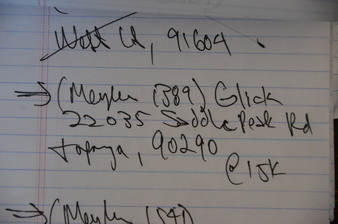 West LA, 91604
→ (Meyler 1389) Glick
22035 Saddle Peak Rd
Topanga, 90290
@ 15K
→ (Meyler 154)